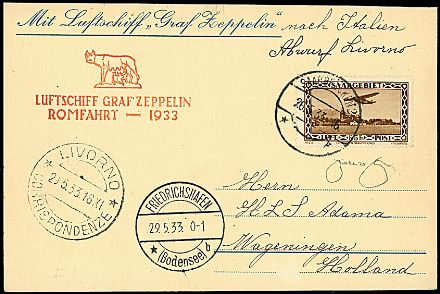 Mit Luftschiff „Graf Zeppelin" nach Italien
Abwurf Livorno
LUFTSCHIFF GRAF ZEPPELIN
ROMFAHRT — 1933
SAARGEBIET
POST
LIVORNO
29.5.33.16.XI
CORRISPONDENZE
FRIEDRICHSHAFEN
29.5.33 0-1
(Bodensee) b
Herrn
H L S Adama
Wageningen
Holland